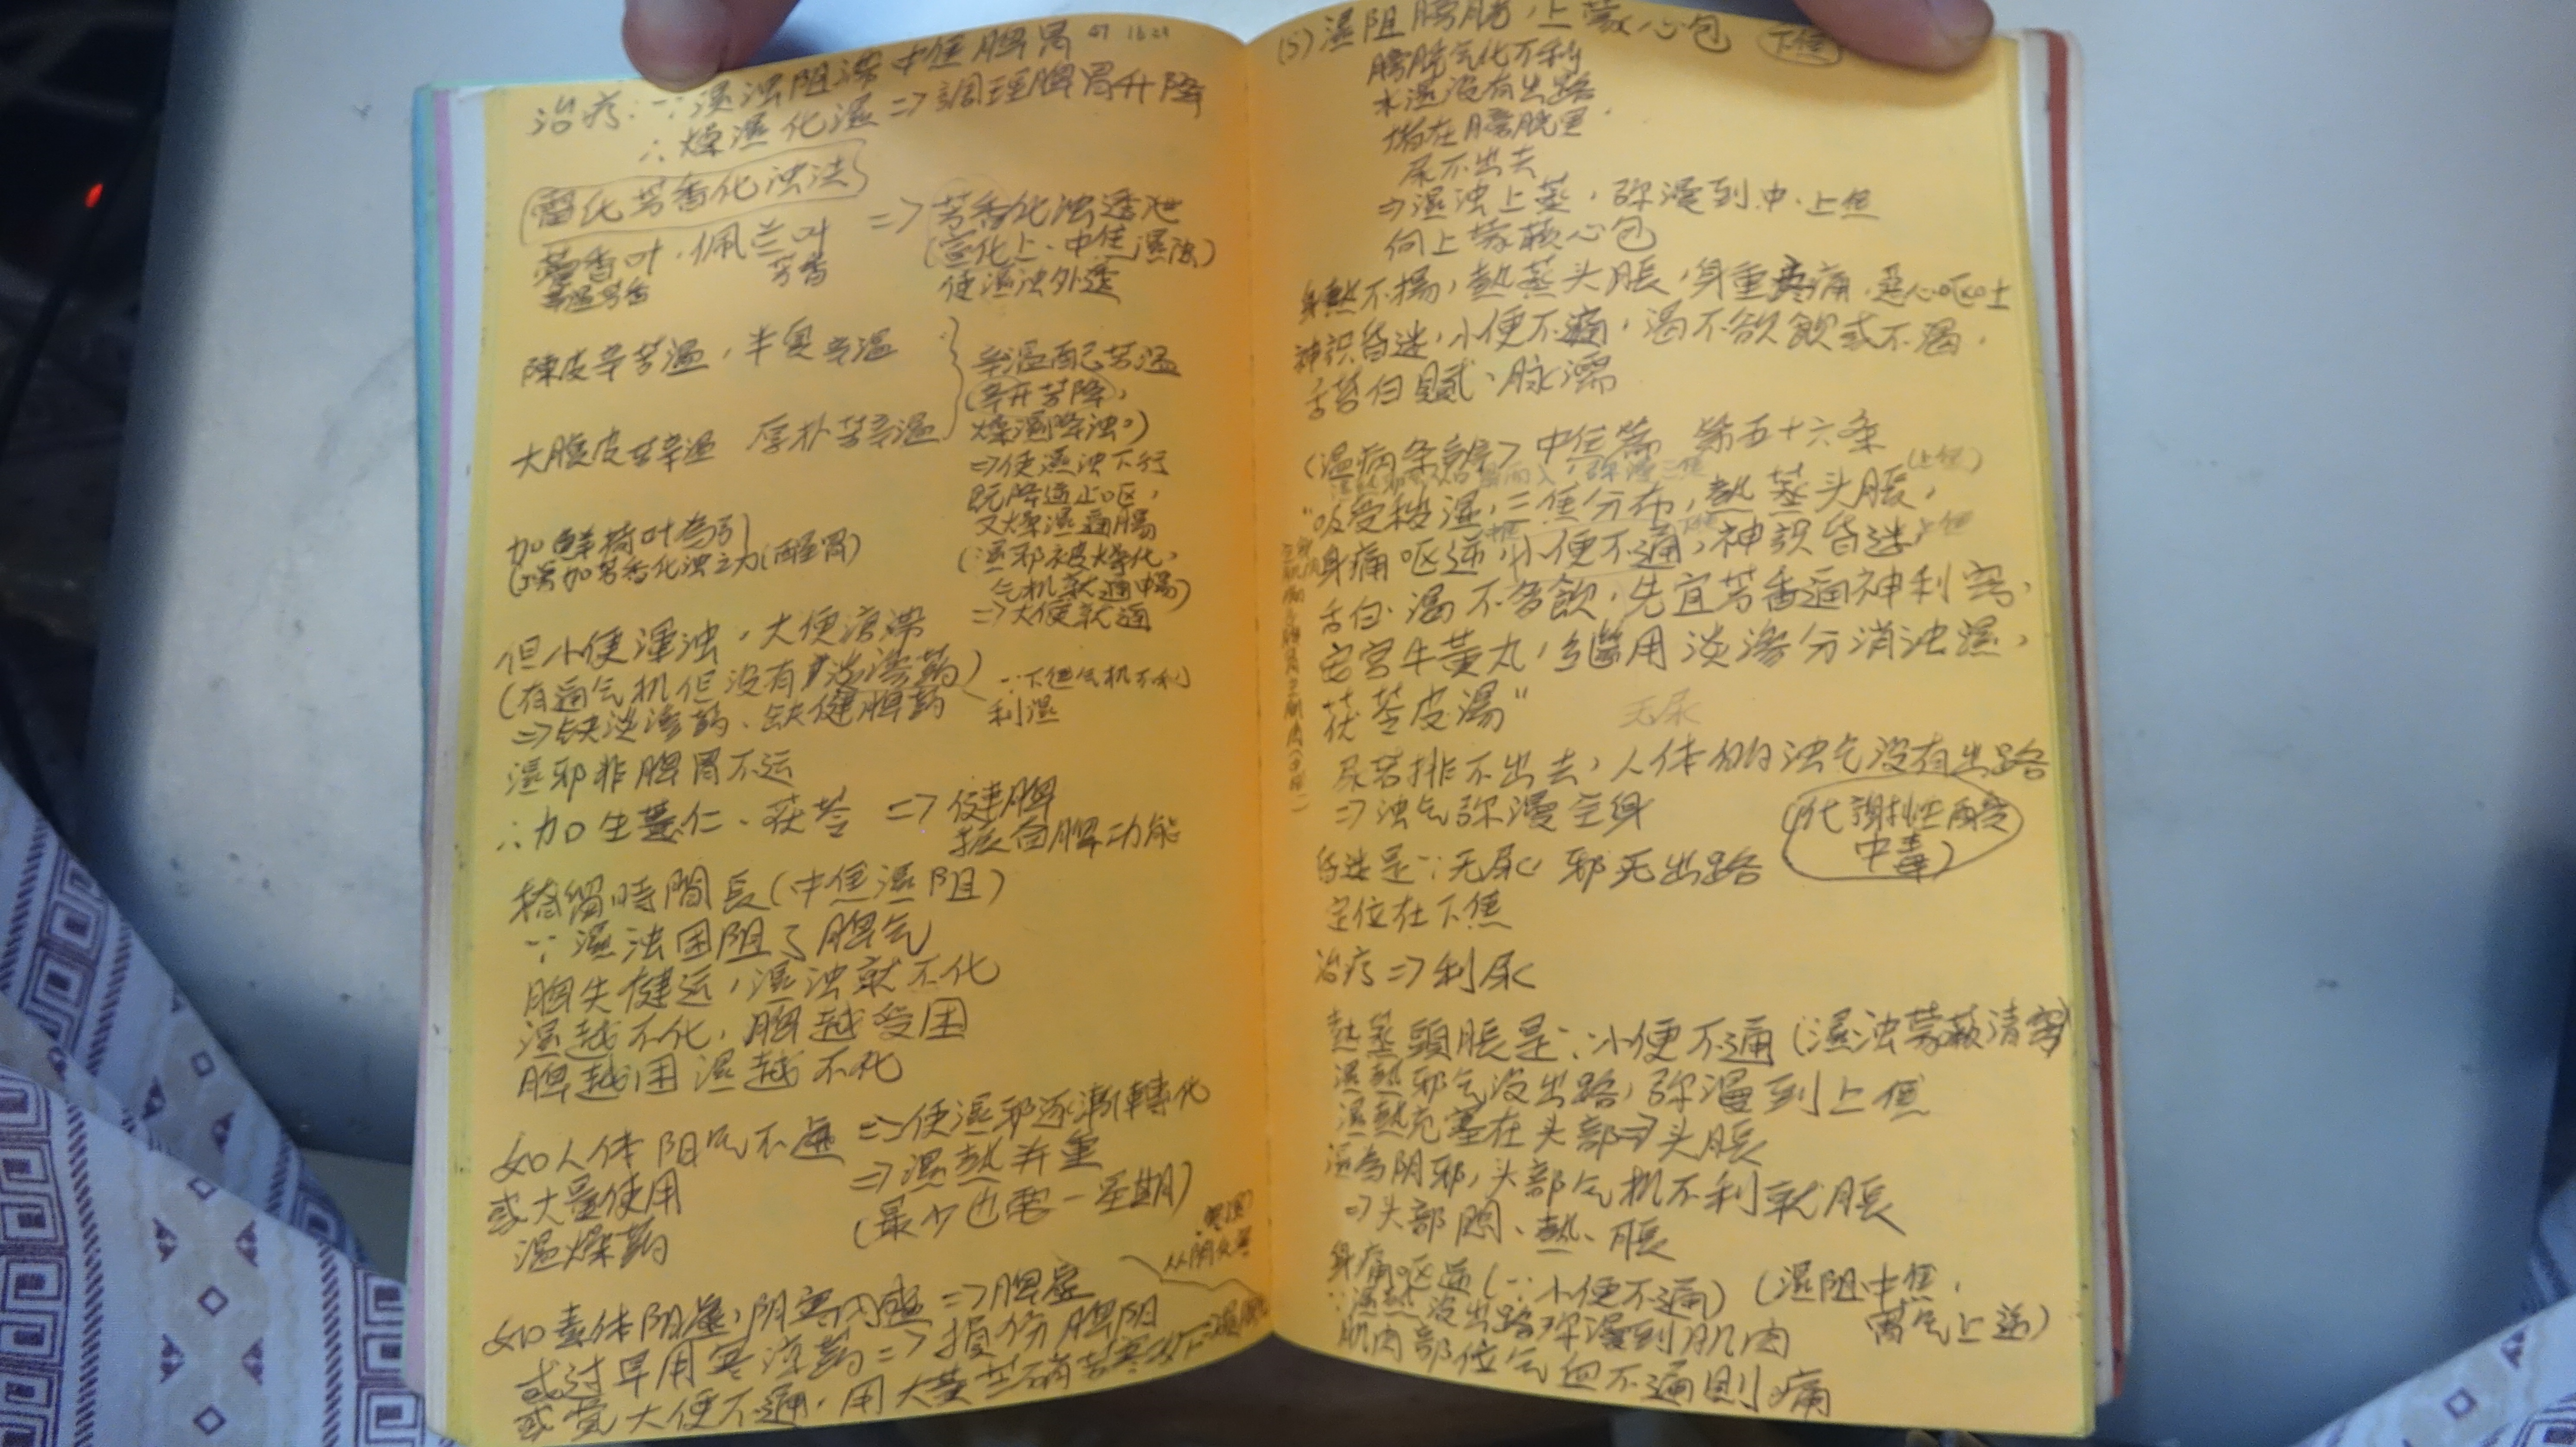 治疗：∵濕浊阻滞中焦脾胃 47 16:29
∴燥濕化濕 => 調理脾胃升降
雷氏芳香化浊法
藿香叶、佩兰叶
辛温芳香 芳香
=> 芳香化浊透泄
(宣化上、中焦濕浊)
使濕浊外透
陳皮辛苦温，半夏辛温
大腹皮苦辛温 厚朴苦辛温
辛温配苦温
(辛开苦降，
燥濕降浊。)
=> 使濕浊下行
既降逆止呕，
又燥濕通腸
(濕邪被燥化，
气机就通暢)
=> 大便就通
加鮮荷叶為引
(增加芳香化浊之力(醒胃)
但小便渾浊，大便溏滞
(有通气机但没有淡渗药)
=> 缺淡渗药、缺健脾药
∵下焦气机不利
利濕
濕邪非脾胃不运
∴加生薏仁、茯苓 => 健脾
振奋脾功能
稽留時間長(中焦濕阻)
∵濕浊困阻了脾气
脾失健运，濕浊就不化
濕越不化，脾越受困
脾越困 濕越不化
如人体阳气不虚
或大量使用
温燥药
=> 使濕邪逐漸轉化
=> 濕熱并重
(最少也要一星期)
如素体阳虚，阴寒内盛 => 脾虚
或过早用寒涼药 => 損伤脾阳
或覚大便不通，用大黄芒硝苦寒攻下
(5) 濕阻膀胱，上蒙心包 下焦
膀胱气化不利
水濕没有出路
堵在膀胱里
尿不出去
=> 濕浊上蒸，弥漫到中、上焦
向上蒙蔽心包
身熱不揚，熱蒸头脹，身重疼痛，恶心呕吐
神识昏迷，小便不通，渴不欲飲或不渴，
舌苔白膩、脉濡
<温病条辨> 中焦篇 第五十六条
“吸受秽濕，三焦分布，熱蒸头脹，(上焦)
身痛呕逆，小便不通，神識昏迷，上焦
舌白，渴不多飲，先宜芳香通神利窍，
安宫牛黄丸，繼用淡渗分消浊濕，
茯苓皮湯”
无尿
尿若排不出去，人体的浊气没有出路
=> 浊气弥漫全身
(代謝性酸
中毒)
昏迷是∵无尿，邪无出路
定位在下焦
治疗 => 利尿
熱蒸頭脹是∵小便不通 (濕浊蒙蔽清窍)
濕熱邪气没出路，弥漫到上焦
濕熱充塞在头部 => 头脹
濕為阴邪，头部气机不利就脹
=> 头部悶、熱、脹
身痛呕逆(∵小便不通) (濕阻中焦，
胃气上逆)
∵濕熱没出路弥漫到肌肉
肌肉部位气血不通則痛